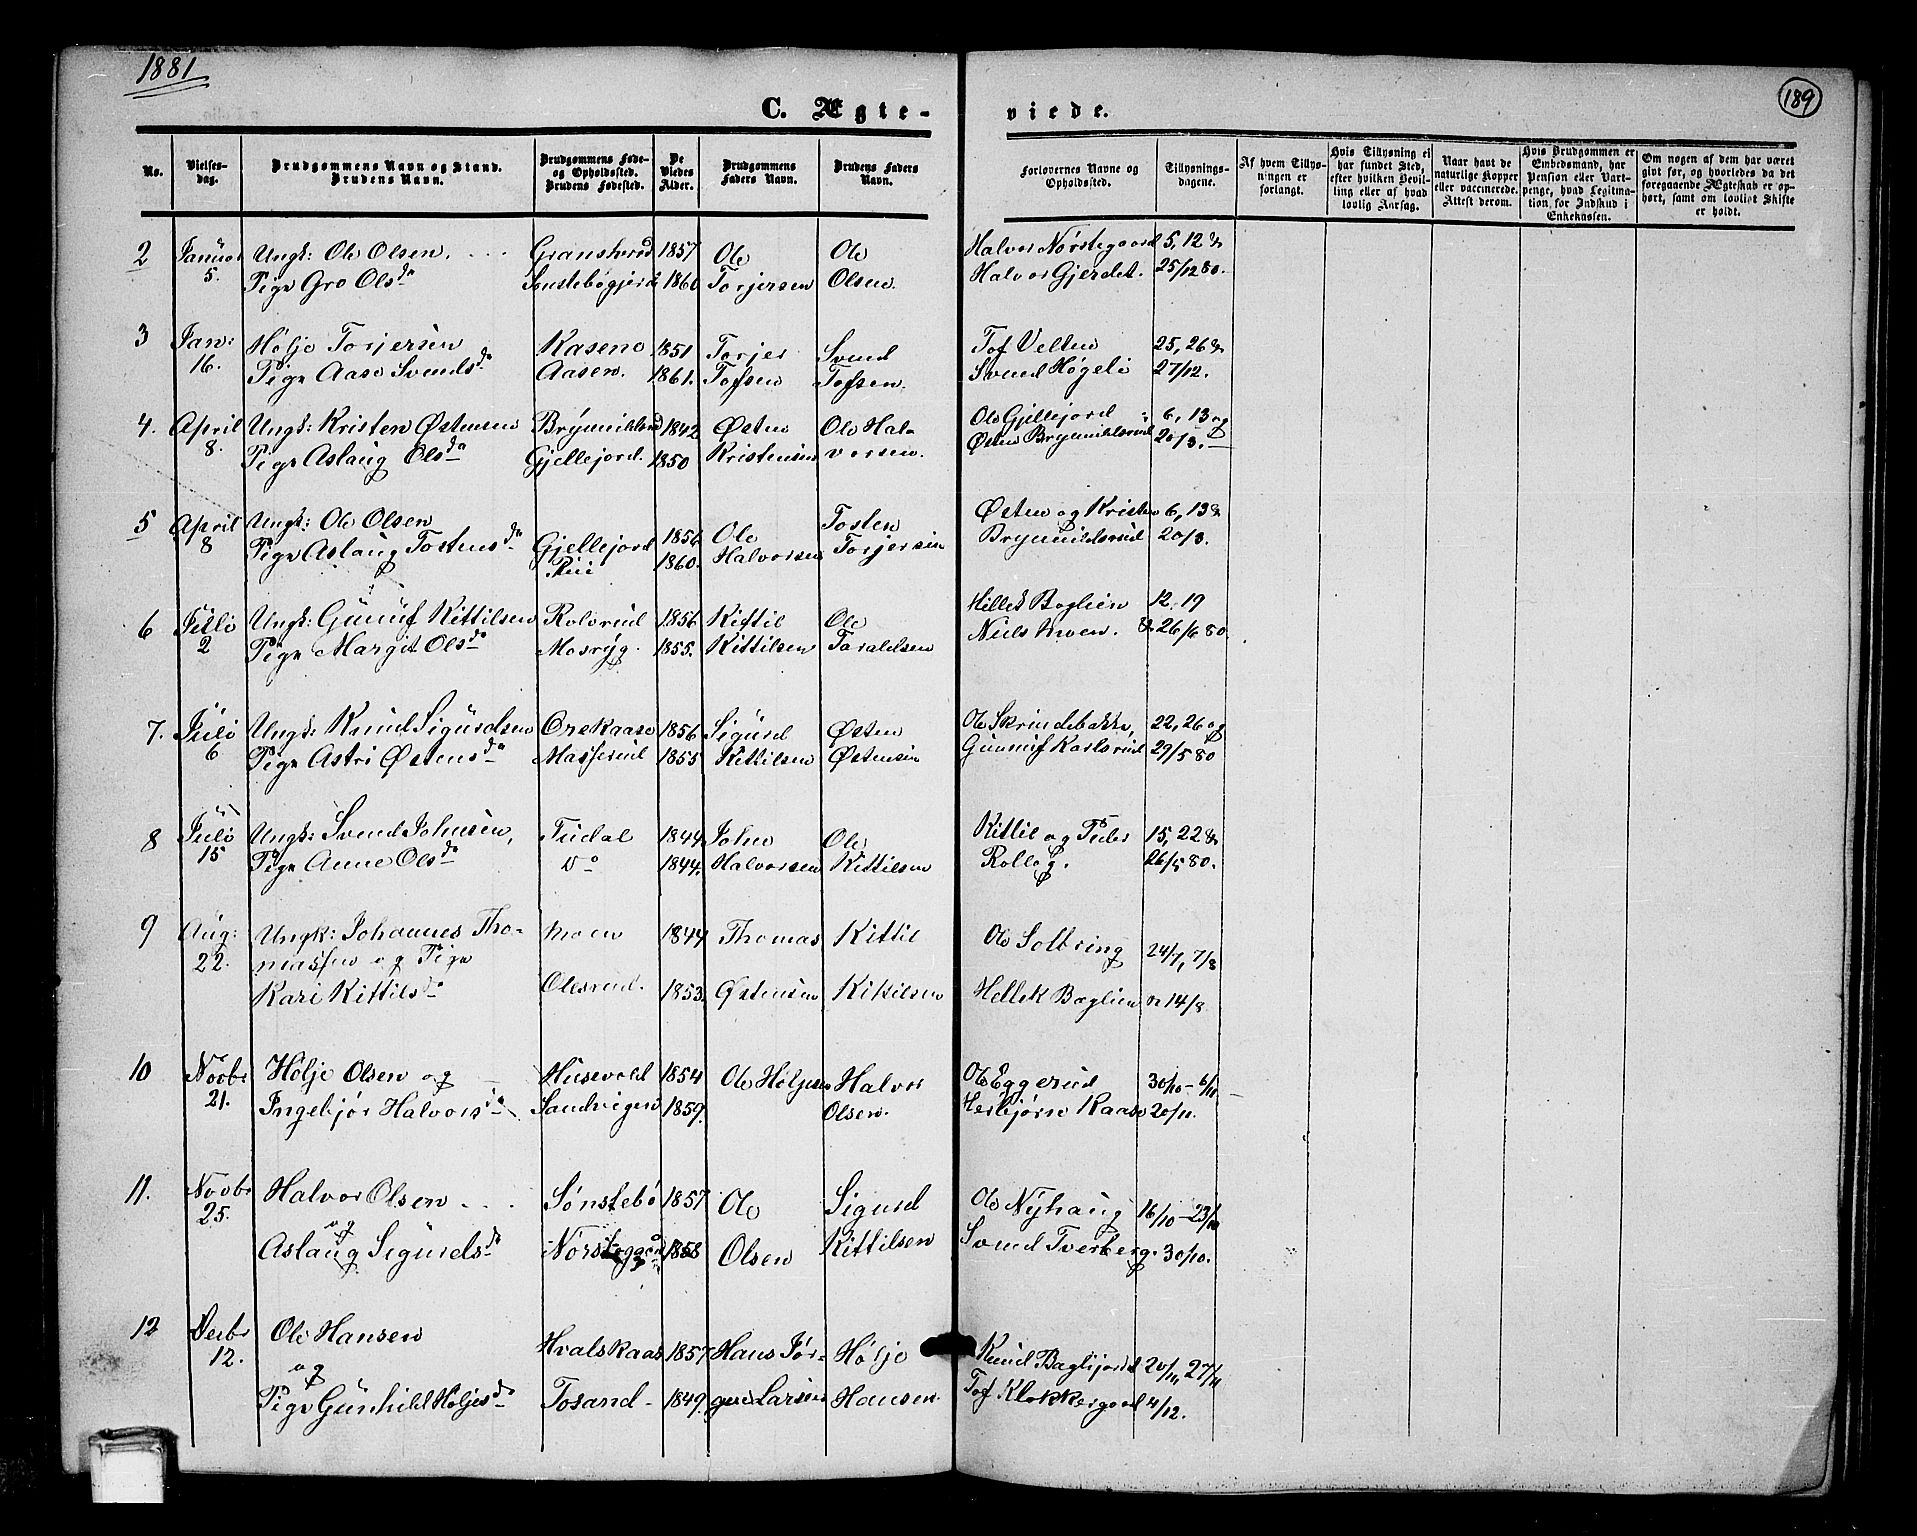 1881
189
C. Ægte-
viede.
No.
Vielses-
dag.
Brudgommens Navn og Stand.
Brudens Navn.
Brudgommens Føde-
og Opholdssted.
Brudens Fødested.
De
Viedes
Alder.
Brudgommens
Faders Navn.
Brudens Faders
Navn.
Forlovernes Navne og
Opholdssted.
Tillysnings-
dagene.
Af hvem Tillys-
ningen er
forlangt.
Hvis Tillysning ei
har fundet Sted,
efter hvilken Bevil-
ling eller af hvad
lovlig Aarsag.
Naar havt de
naturlige Kopper
eller vaccinerede.
Attest derom.
Hvis Brudgommen er
Embedsmand, har
Pension eller Vart-
penge, hvad Legitima-
tion, for Indskud i
Enkekassen.
Om nogen af dem har været
givt før, og hvorledes da det
foregaaende Ægteskab er op-
hørt, samt om lovligt Skifte
er holdt.
2 Januar Ungk: Ole Olsen, 1857 Ole Ole Halvor Norstegaard 5, 12 &
5. Pige Gro Olsda 1860 Torjersen Olsen. Halvor Gjerdet. 25/12 80.
3 Jan: Høljo Torjersen Kaseno 1851 Torjer Svend Tof Velten 25, 26 &
16. Pige Aase Svendsda Aasen. 1861. Tofsen Tofsen. Svend Høgeli 27/12.
4. April Ungk: Kristen Østensen 1842 Østen Ole Hal- Ole Gjellejord 6, 13 og
8. Pige Aslaug Olsda Gjellejord. 1850 Kristensen vorsen. Østen Brynnildsrud 20/3.
5 April Ungk: Ole Olsen Gjellejord 1856 Ole Tosten Østen og Kristen 6, 13 &
8 Pige Aslaug Tostensda 1860. Halvorsen Torjersen Brynnildsrud 20/3.
6 Juli Ungk: Gunuf Kittilsen Rolsrud 1856 Kittil Ole Hellek Baglien 12. 19
2 Pige Margit Olsda Mosryg. 1855. Kittilsen Taraldsen Niels Moen. & 26/6 80.
7. Juli Ungk: Knud Sigurdsen 1856 Sigurd Østen Ole Skrindebakke, 22, 26 og
6 Pige Astri Østensda Masserud 1855 Kittilsen Østensen Gunnuf Karlsrud 29/5 80
8 Juli Ungk: Svend Johnsen, Tudal 1844. John Ole Kittil og Peder 15, 22 &
15 Pige Anne Olsda Do 1844. Halvorsen Kittilsen Rollag. 26/5 80.
9 Aug: Ungk: Johannes Tho- Moen 1844 Thomas Kittil Ole Solbring 24/7, 7/8
22. massen og Pige
Kari Kittilsda Olesrud. 1853. Østensen Kittilsen Hellek Baglien & 14/8
10 Novbr Høljo Olsen og Husevold 1854 Ole Høljesen Halvor Ole Eggerud 30/10 - 6/11
21. Ingebjør Halvorsda Sandvigen 1859. Olsen. Herbjørn Kaaso 20/11.
11. Novbr Halvor Olsen Sønstebø 1857 Ole Sigurd Ole Nyhaug 16/10 - 23/10
25. og
Aslaug Sigurdsda 1858 Olsen Kittilsen Svend Tverberg. 30/10.
12 Decbr Ole Hansen Hvalskaas 1857 Hans Jør- Høljo Knud Baglijordet 20/11, 27/11
12. og
Pige Gunhild Høljesda Tosand 1849. gen Larsen Hansen. Tof Klokkergaard 4/12.